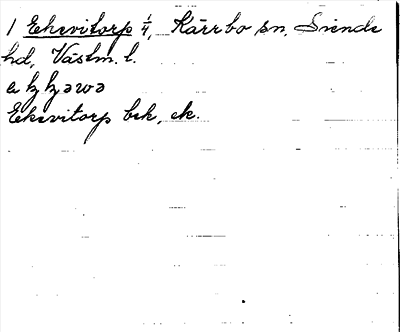 1 Ekevitorp 1/4, Kärrbo sn, Siende
hd, Västm. l.
Ekevitorp bek, ek.